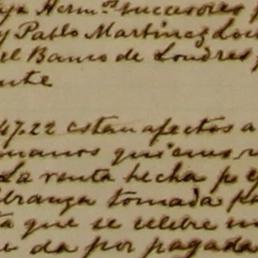 Hermos. sucesores
y Pablo Martinez
el Banco de Londres y
nte
47.22 estan afectos a
manos quienes
La venta hecha p
branza tomada pa
que se celebre
da por pagada